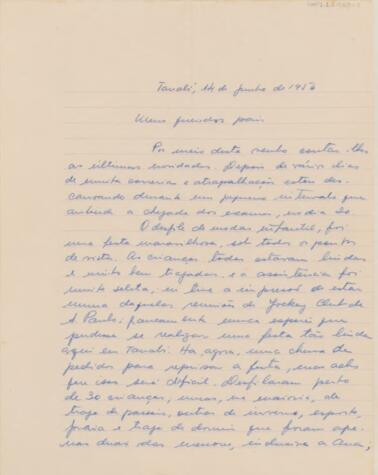 Tanabi, 14 de Junho de 1953
Meus queridos pais
Por meio desta venho contar-lhes
as últimas novidades. Depois de vários dias
de muita correria e atrapalhação estou des-
cansando durante um pequeno intervalo que
antecede a chegada dos exames, no dia 20.
O desfile de modas infantil, foi
uma festa maravilhosa, sob todos os pontos
de vista. As crianças todas estavam lindas
e muito bem trajadas e a assistência foi
muito seleta, eu tive a impressão de estar
numa daquelas reunião do Jockey Club de
S. Paulo; francamente nunca esperei que
pudesse se realizar uma festa tão linda
aqui em Tanabi. Há agora, uma chuva de
pedidos para reprisar a festa, mas acho
que isso será difícil. Desfilaram perto
de 30 crianças, umas, na maioria, de
traje de passeio, outras de inverno, esporte,
praia e traje de dormir que foram ape-
nas duas das menores, inclusive a